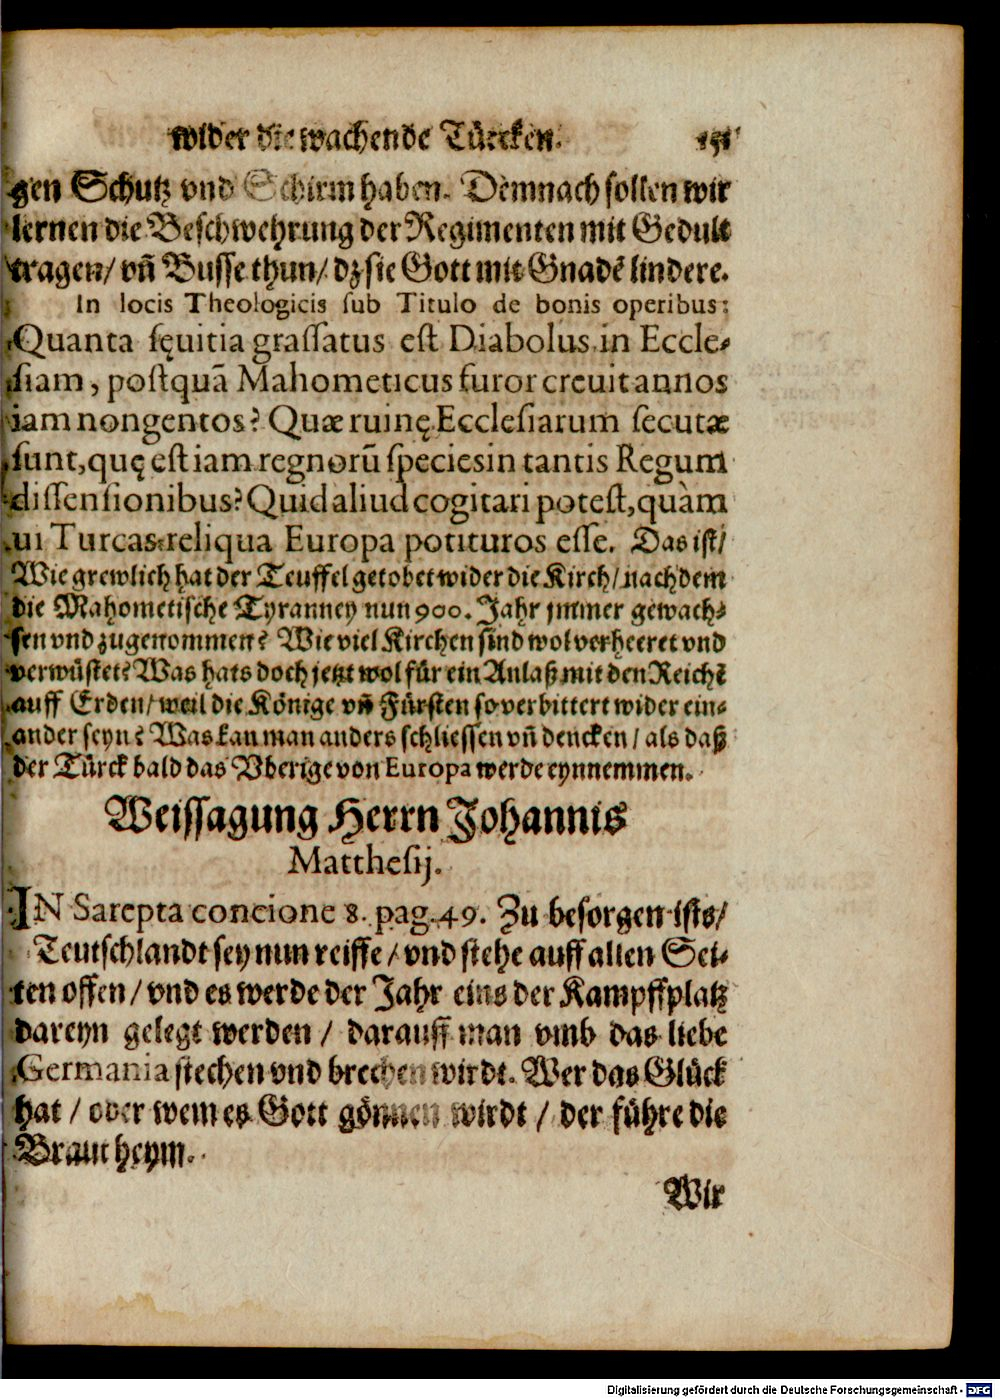 wider die wachende Türcken. 151
gen Schutz vnd Schirm haben. Demnach sollen wir
lernen die Beschwehrung der Regimenten mit Gedult
tragen/ vñ Busse thun/ dz sie Gott mit Gnadẽ lindere.
In locis Theologicis sub Titulo de bonis operibus:
Quanta sęuitia grassatus est Diabolus in Eccle-
siam, postquã Mahometicus furor creuit annos
iam nongentos? Quæ ruinę Ecclesiarum secutæ
sunt, quę est iam regnorũ species in tantis Regum
dissensionibus? Quid aliud cogitari potest, quàm
ui Turcas reliqua Europa potituros esse. Das ist/
Wie grewlich hat der Teuffel getobet wider die Kirch/ nach dem
die Mahometische Tyranney nun 900. Jahr jmmer gewach-
sen vnd zugenommen? Wie viel Kirchen sind wol verheeret vnd
verwüstet? Was hats doch jetzt wol für ein Anlaß mit den Reichẽ
auff Erden/ weil die Könige vñ Fürsten so verbittert wider ein-
ander seyn? Was kan man anders schliessen vñ dencken/ als daß
der Türck bald das Vberige von Europa werde eynnemmen.
Weissagung Herrn Johannis
Matthesij.
IN Sarepta concione 8. pag. 49. Zu besorgen ists/
Teutschlandt sey nun reiffe/ vnd stehe auff allen Sei-
ten offen/ vnd es werde der Jahr eins der Kampffplatz
dareyn gelegt werden/ darauff man vmb das liebe
Germania stechen vnd brechen wirdt. Wer das Glück
hat/ oder wem es Gott gönnen wirdt/ der führe die
Braut heym.
Wir
Digitalisierung gefördert durch die Deutsche Forschungsgemeinschaft - DFG